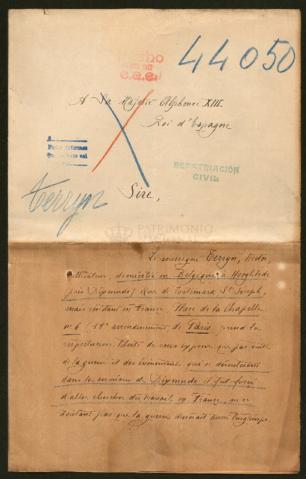 44050
A Sa Majesté Alphonse XIII
Roi d'Espagne
REPATRIACIÓN
CIVIL
Terryn
Sire,
PATRIMONIO
NACIONAL
Le soussigné Terryn,
cultivateur, domicilié en Belgique à Hooghlede
(près Dixmude) Rue de St Joseph,
mais résidant en France Place de la Chapelle
n° 6 (18e arrondissement de Paris) prend la
respectueuse liberté de vous exposer que par suite
de la guerre et des évènements qui se déroulèrent
dans les environs de Dixmude il fut forcé
d'aller chercher du travail en France, ne se
doutant pas que la guerre durerait aussi longtemps.